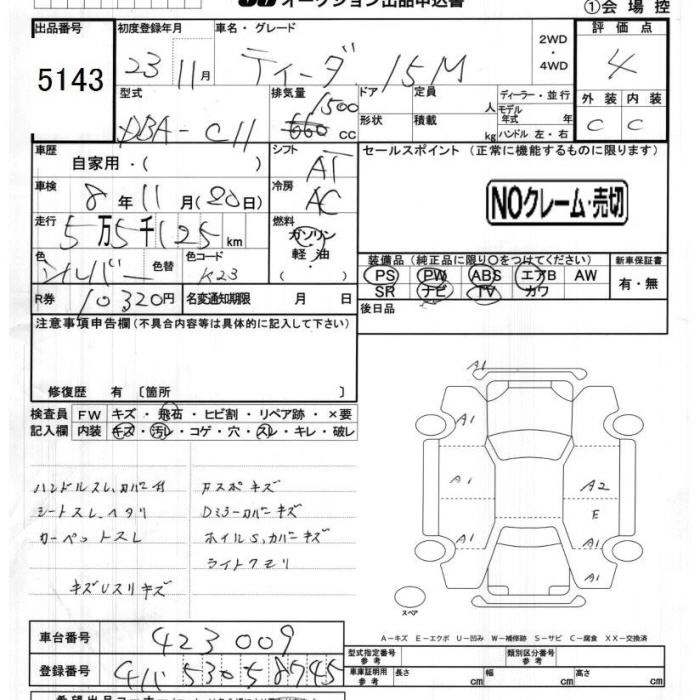 オークション出品申込書
①会場控
出品番号 初度登録年月 車名・グレード 2WD・4WD 評価点
5143 23 11月 ティーダ 15M 4
型式 排気量 ドア 定員 ディーラー・並行 外装 内装
DBA-C11 1500 660 cc 形状 積載 人 kg モデル年式 年 ハンドル 左・右 C C
車歴 シフト セールスポイント (正常に機能するものに限ります)
自家用・( ) AT
車検 冷房
8年11月(20日) AC NOクレーム・売切
走行 燃料
5万5千125km ガソリン・軽油・( )
色 色替 色コード 装備品(純正品に限り○をつけてください) 新車保証書
シルバー K23 PS PW ABS エアB AW 有・無
R券 10320円 名変通知期限 月 日 SR ナビ TV カワ
注意事項申告欄(不具合内容等は具体的に記入して下さい) 後日品
修復歴 有 〔箇所 〕
検査員 FW キズ・飛石・ヒビ割・リペア跡・×要
記入欄 内装 キズ・汚レ・コゲ・穴・スレ・キレ・破レ
ハンドルスレ、カバー付 Fスポキズ
シートスレ、ヘタリ Dミラーカバーキズ
カーペットスレ ホイルS、カバーキズ
ライトクモリ
キズUスリキズ
A1
A1 A1
A1 A2
E
A1 A1
A1
スペア
A-キズ E-エクボ U-凹み W-補修跡 S-サビ C-腐食 XX-交換済
車台番号 423009
型式指定番号 参考 類別区分番号 参考
登録番号
車庫証明用 参考 長さ cm 幅 cm 高さ cm